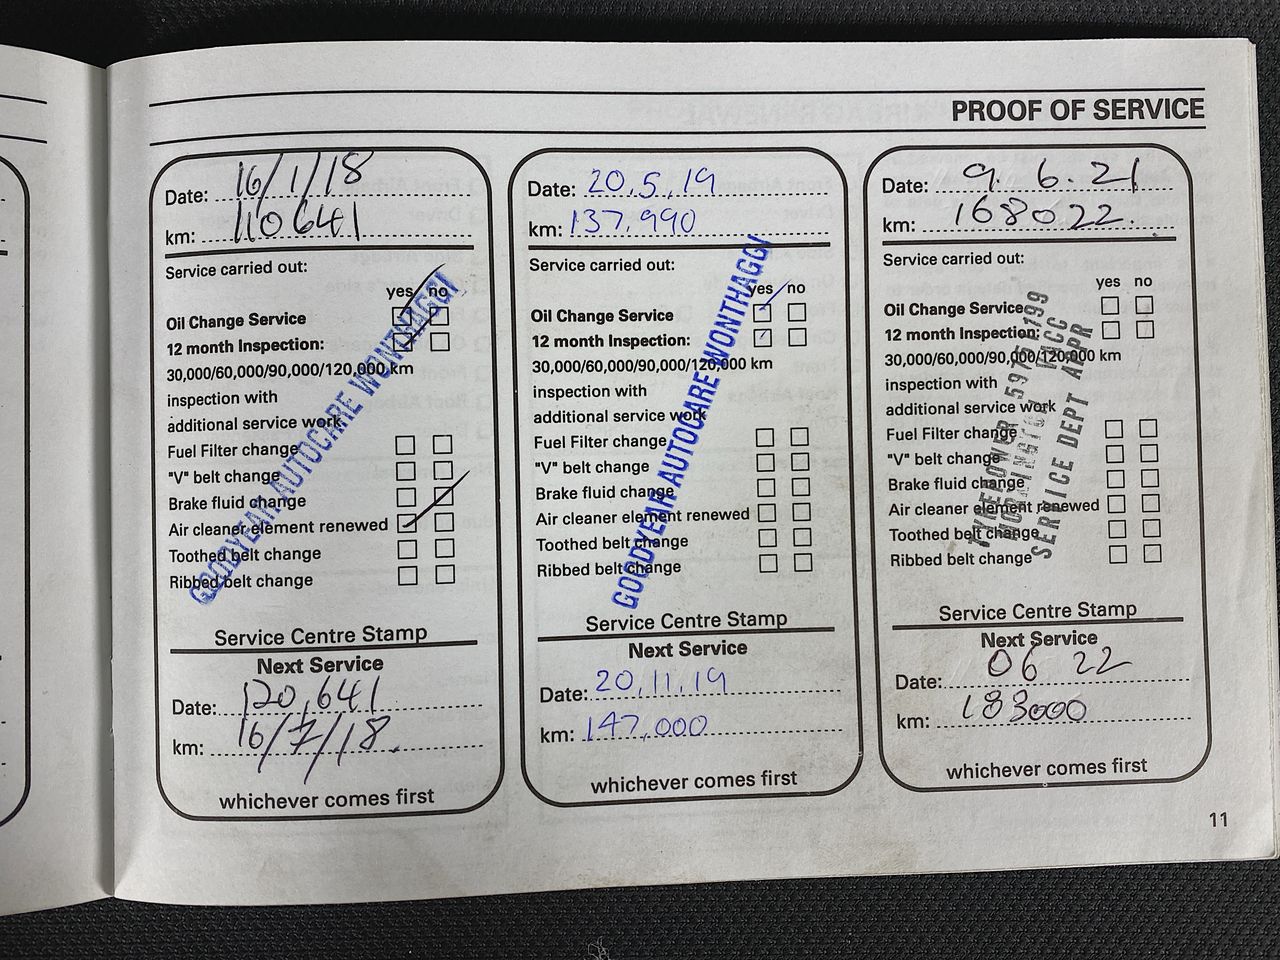 PROOF OF SERVICE
Date: 16/1/18
km: 110641
Service carried out:
yes no
Oil Change Service
12 month Inspection:
30,000/60,000/90,000/120,000 km
inspection with
additional service work
Fuel Filter change
"V" belt change
Brake fluid change
Air cleaner element renewed
Toothed belt change
Ribbed belt change
GOODYEAR AUTOCARE WONTHAGGI
Service Centre Stamp
Next Service
Date: 120,641
km: 16/7/18.
whichever comes first
Date: 20.5.19
km: 137.990
Service carried out:
yes no
Oil Change Service
12 month Inspection:
30,000/60,000/90,000/120,000 km
inspection with
additional service work
Fuel Filter change
"V" belt change
Brake fluid change
Air cleaner element renewed
Toothed belt change
Ribbed belt change
GOODYEAR AUTOCARE WONTHAGGI
Service Centre Stamp
Next Service
Date: 20.11.19
km: 147.000
whichever comes first
Date: 9.6.21
km: 168022.
Service carried out:
yes no
Oil Change Service
12 month Inspection:
30,000/60,000/90,000/120,000 km
inspection with
additional service work
Fuel Filter change
"V" belt change
Brake fluid change
Air cleaner element renewed
Toothed belt change
Ribbed belt change
TYREPOWER 5975 1199
MORNINGTON VACC
SERVICE DEPT APR
Service Centre Stamp
Next Service
Date: 06 22
km: 183000
whichever comes first
11